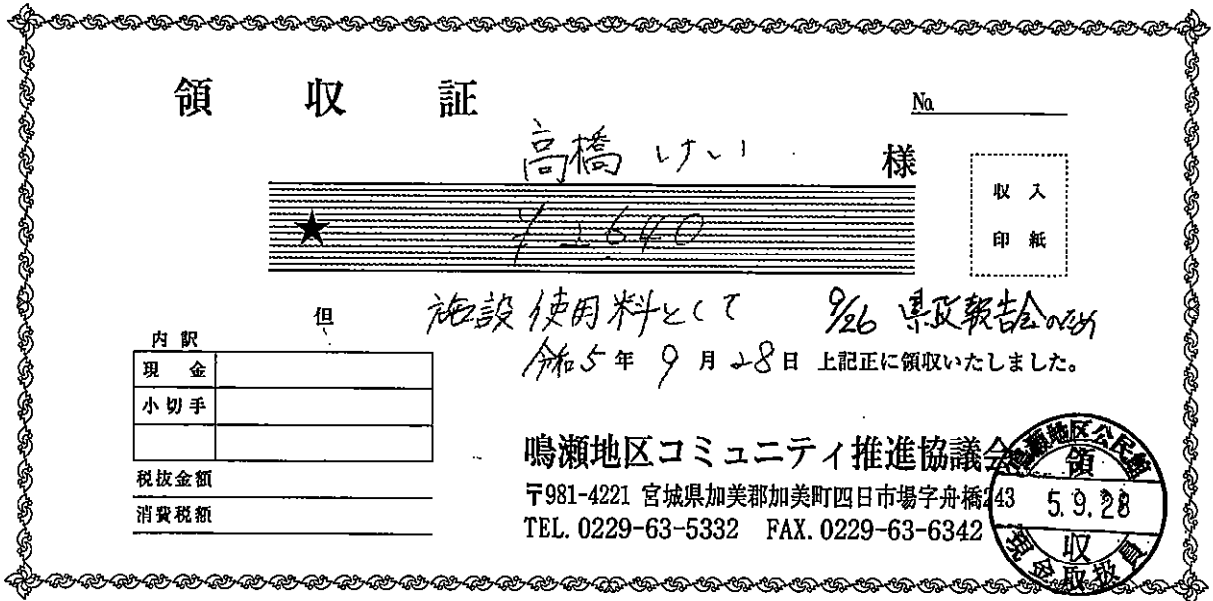 領収証
No.
高橋 けい 様
収入
印紙
★ ¥2640
但 施設使用料として 9/26 県政報告会のため
令和5年9月28日 上記正に領収いたしました。
内訳
現金
小切手
税抜金額
消費税額
鳴瀬地区コミュニティ推進協議会
〒981-4221 宮城県加美郡加美町四日市場字舟橋243
TEL. 0229-63-5332 FAX. 0229-63-6342
鳴瀬地区公民館
領
5.9.28
収
現金取扱員